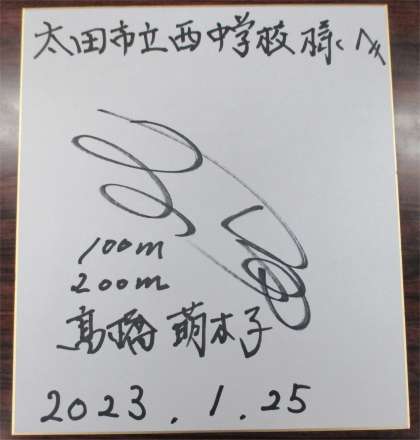 太田市立西中学校様へ
100m
200m
髙橋 萌木子
2023.1.25